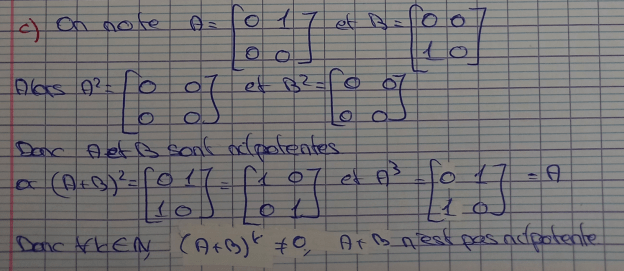 c) On note A = [0 1
0 0] et B = [0 0
1 0]
Alors A² = [0 0
0 0] et B² = [0 0
0 0]
Donc A et B sont nilpotentes
or (A+B)² = [0 1
1 0] = [1 0
0 1] et A³ = [0 1
1 0] = A
Donc ∀k∈N, (A+B)^k ≠ 0, A+B n'est pas nilpotente